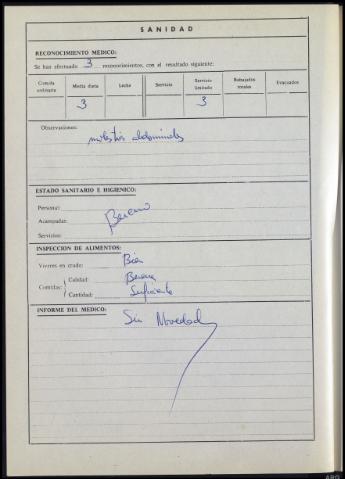 SANIDAD
RECONOCIMIENTO MEDICO:
Se han efectuado 3 reconocimientos, con el resultado siguiente:
Comida ordinaria Media dieta Leche Servicio Servicio limitado Rebajados totales Evacuados
3 3
Observaciones:
molestias abdominales
ESTADO SANITARIO E HIGIENICO:
Personal:
Acampada:
Bueno
Servicios:
INSPECCION DE ALIMENTOS:
Víveres en crudo: Bien
Comidas: Calidad: Buena
Cantidad: Suficiente
INFORME DEL MEDICO: Sin Novedad